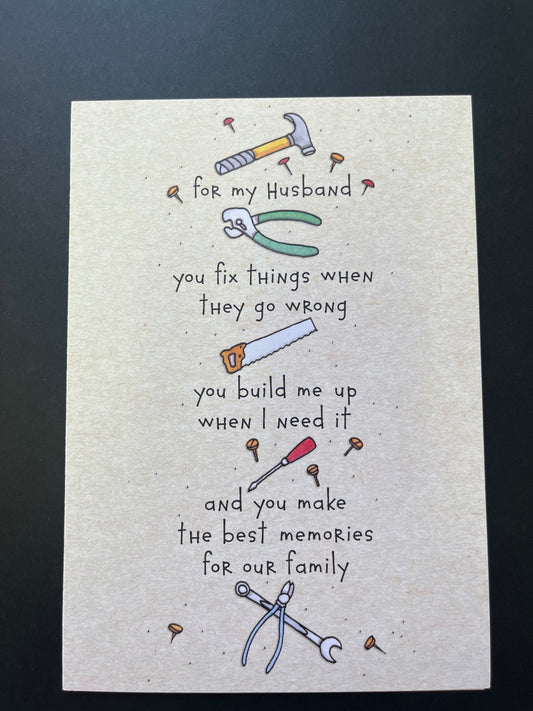 for my Husband
you fix things when
they go wrong
you build me up
when I need it
and you make
the best memories
for our family